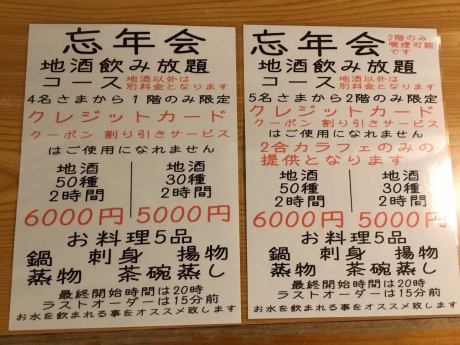 忘年会
地酒飲み放題
コース
地酒以外は
別料金となります
4名さまから1階のみ限定
クレジットカード
クーポン 割り引きサービス
はご使用になれません
地酒
50種
2時間
6000円
地酒
30種
2時間
5000円
お料理5品
鍋 刺身 揚物
蒸物 茶碗蒸し
最終開始時間は20時
ラストオーダーは15分前
お水を飲まれる事をオススメ致します
忘年会
2階のみ
喫煙可能
です
地酒飲み放題
コース
地酒以外は
別料金となります
5名さまから2階のみ限定
クレジットカード
クーポン 割り引きサービス
はご使用になれません
2合カラフェのみの
提供となります
地酒
50種
2時間
6000円
地酒
30種
2時間
5000円
お料理5品
鍋 刺身 揚物
蒸物 茶碗蒸し
最終開始時間は20時
ラストオーダーは15分前
お水を飲まれる事をオススメ致します